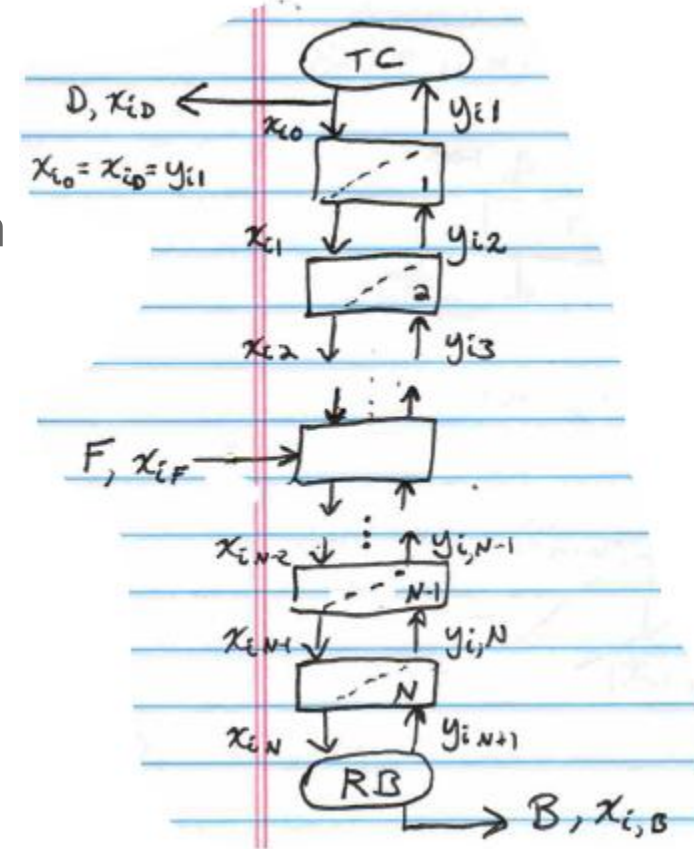 TC
D, x_iD
x_i0
y_i1
x_i0 = x_iD = y_i1
1
x_i1
y_i2
2
x_i2
y_i3
n
F, x_iF
x_i N-2
y_i,N-1
N-1
x_i N-1
y_i,N
N
x_i N
y_i N+1
RB
B, x_i,B